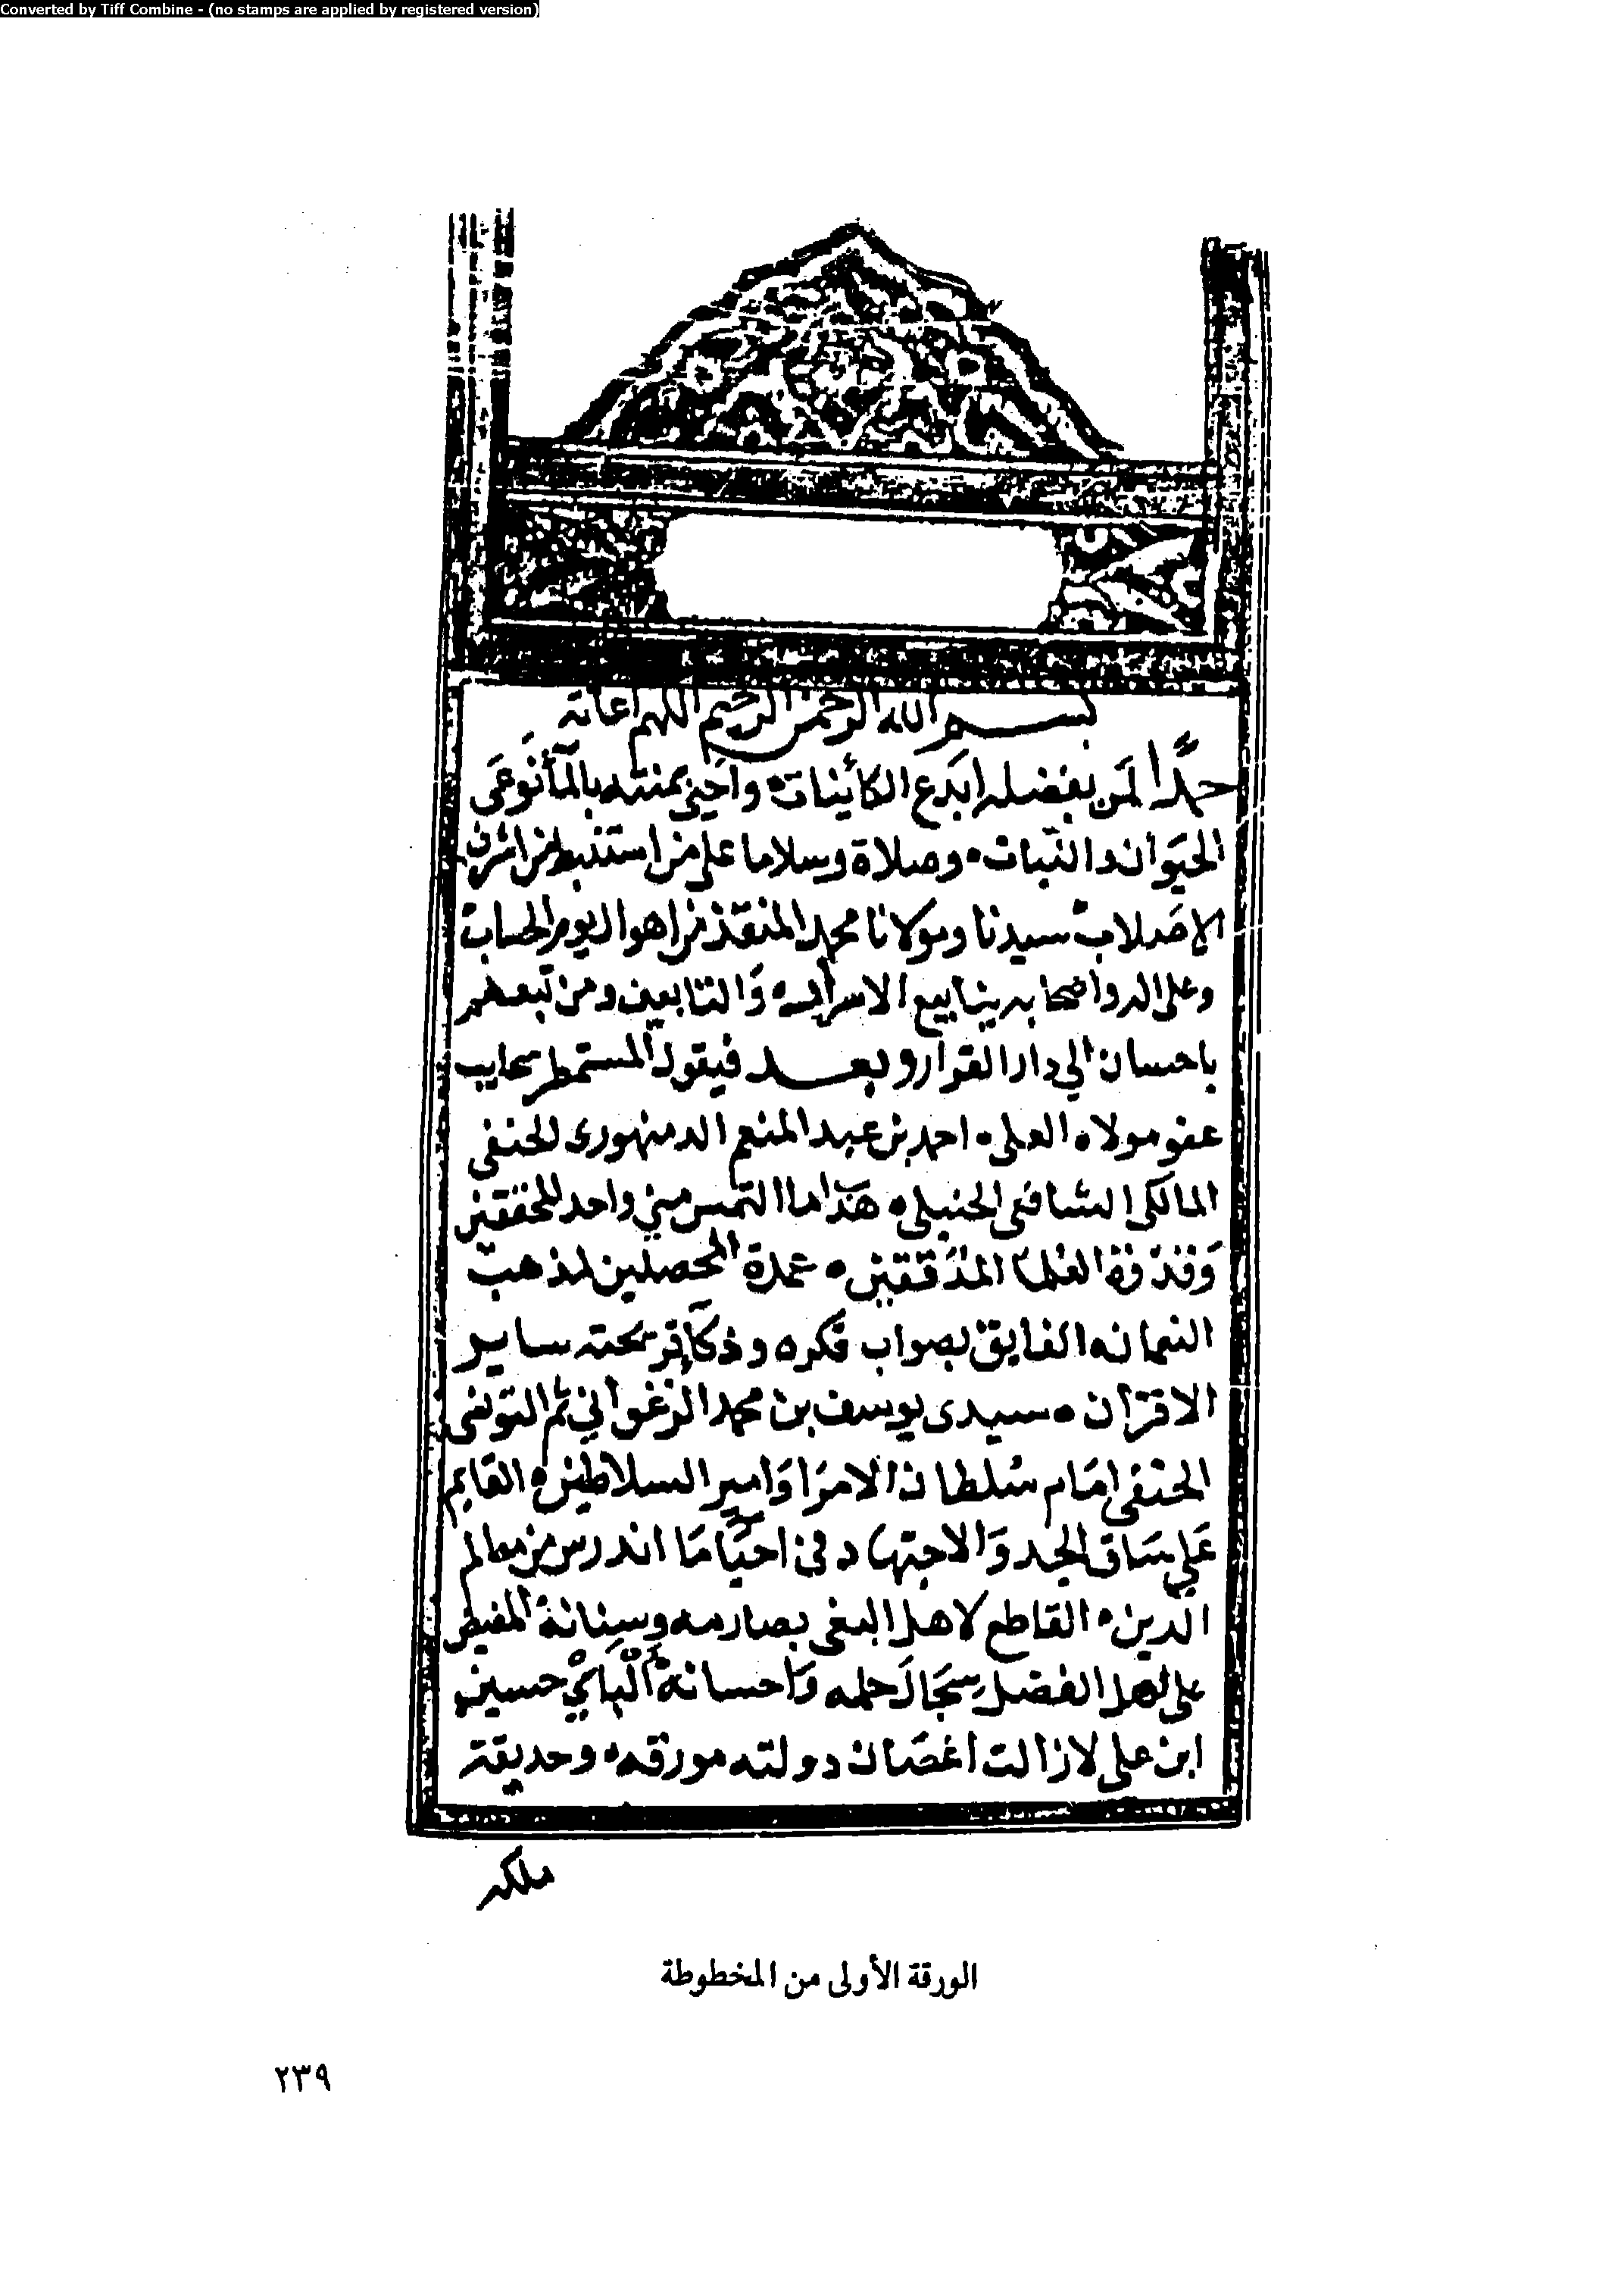 Converted by Tiff Combine - (no stamps are applied by registered version)
بسم الله الرحمن الرحيم اللهم اعانة
حمدًا لمن بفضله ابدع الكائنات واحيى بمنته بالمأ نوعَى
الحيوان والنبات وصلاة وسلاما على من استنبط من اشرف
الاصلاب سيدنا ومولانا محمد المنقذ من اهوال يوم الحساب
وعلى اله واصحابه ينابيع الاسرار والتابعين ومن تبعهم
باحسان الى دار القرار وبعد فيقول المستمطر سحايب
عفو مولاه العلى احمد بن عبد المنعم الدمنهورى الحنفى
المالكى الشافعى الحنبلى هذا ما التمس منى واحد المحققين
العلما المدققين عمدة المحصلين لمذهب
النعمان الفايق بصواب فكره وذكا قريحته ساير
الاقران سيدى يوسف بن محمد الزغوانى ثم التونسى
الحنفى امام سلطان الامرا وامير السلاطين القايم
على ساق الجد والاجتهاد فى احيا ما اندرس من معالم
الدين القاطع لاهل البغى بصارمه وسنانه المفيض
على اهل الفضل سجال حلمه واحسانه الباى حسين
ابن على لازالت اغصان دولته مورقه وحديقة
ملكه
الورقة الأولى من المخطوطة
٢٣٩